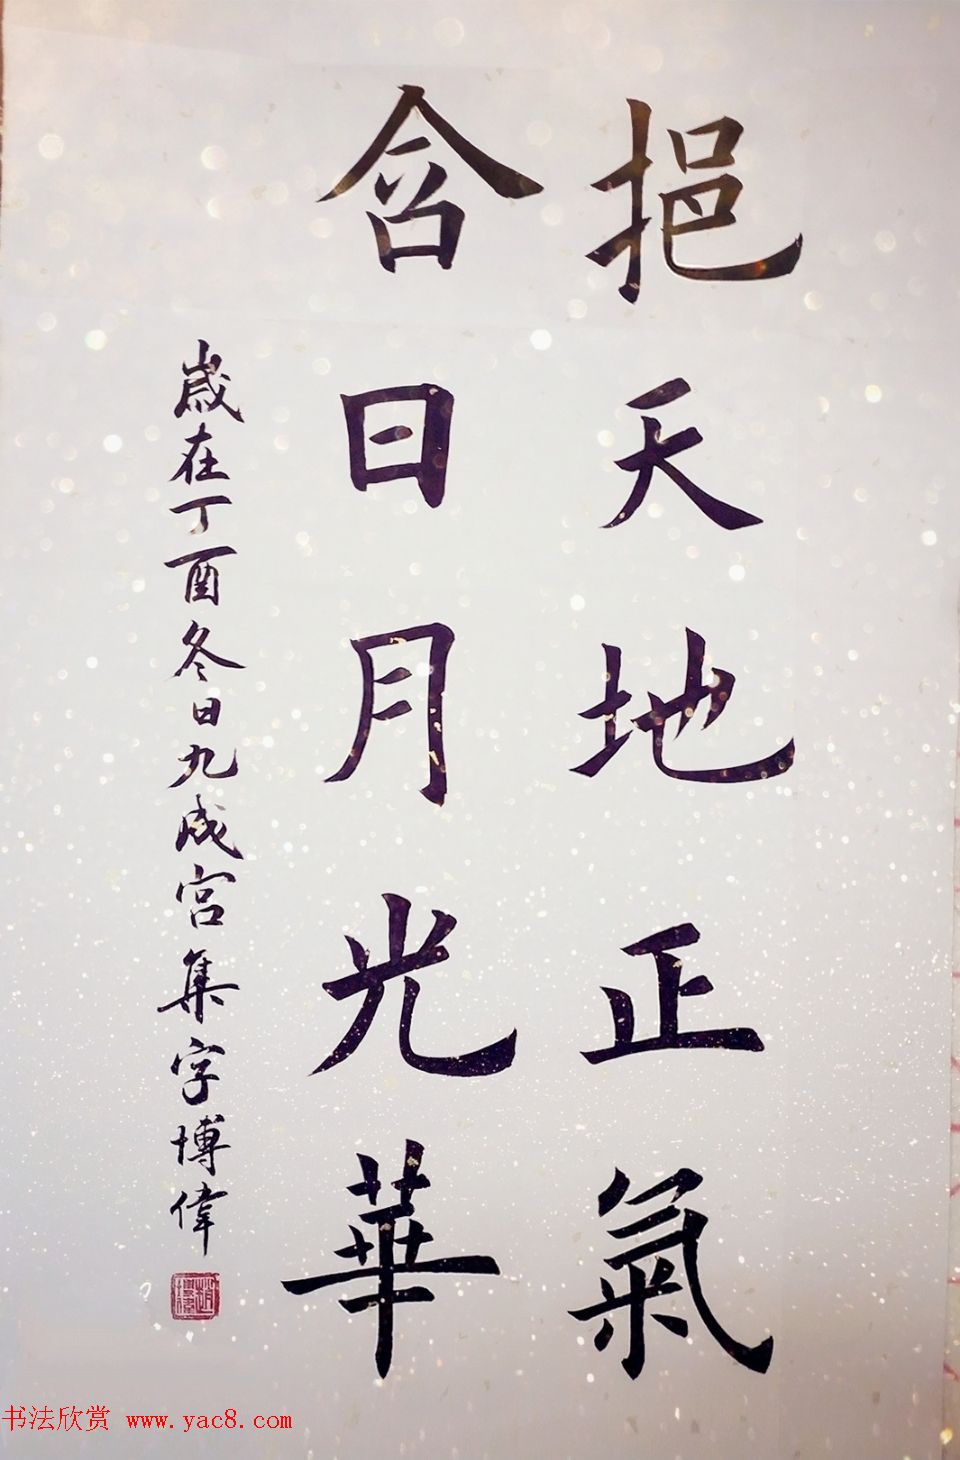 挹天地正氣
含日月光華
歲在丁酉冬日九成宮集字博偉
书法欣赏 www.yac8.com